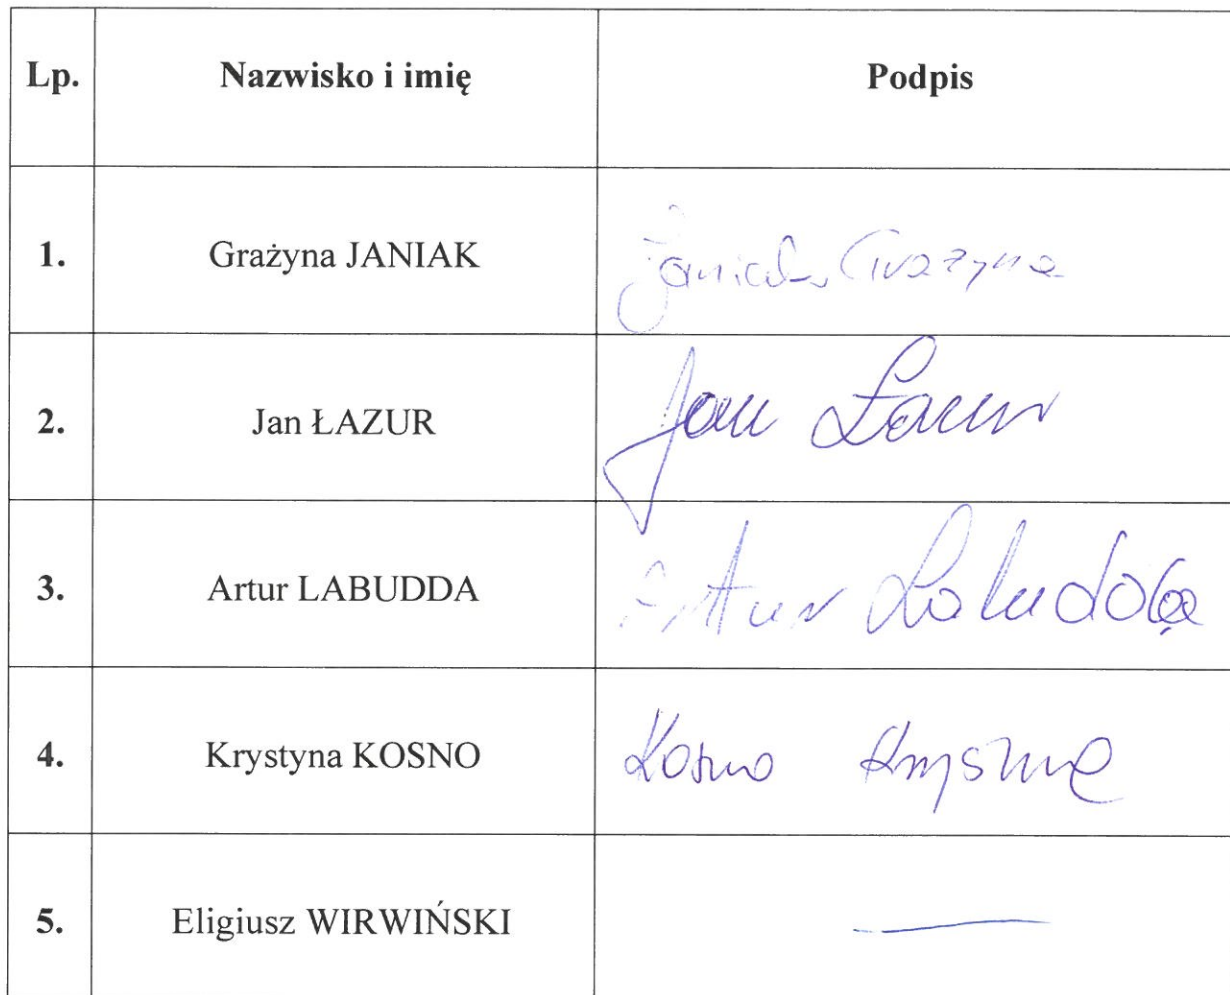 Lp. Nazwisko i imię Podpis
1. Grażyna JANIAK Janiak Grażyna
2. Jan ŁAZUR Jan Łazur
3. Artur LABUDDA Artur Labudda
4. Krystyna KOSNO Kosno Krystyna
5. Eligiusz WIRWIŃSKI —